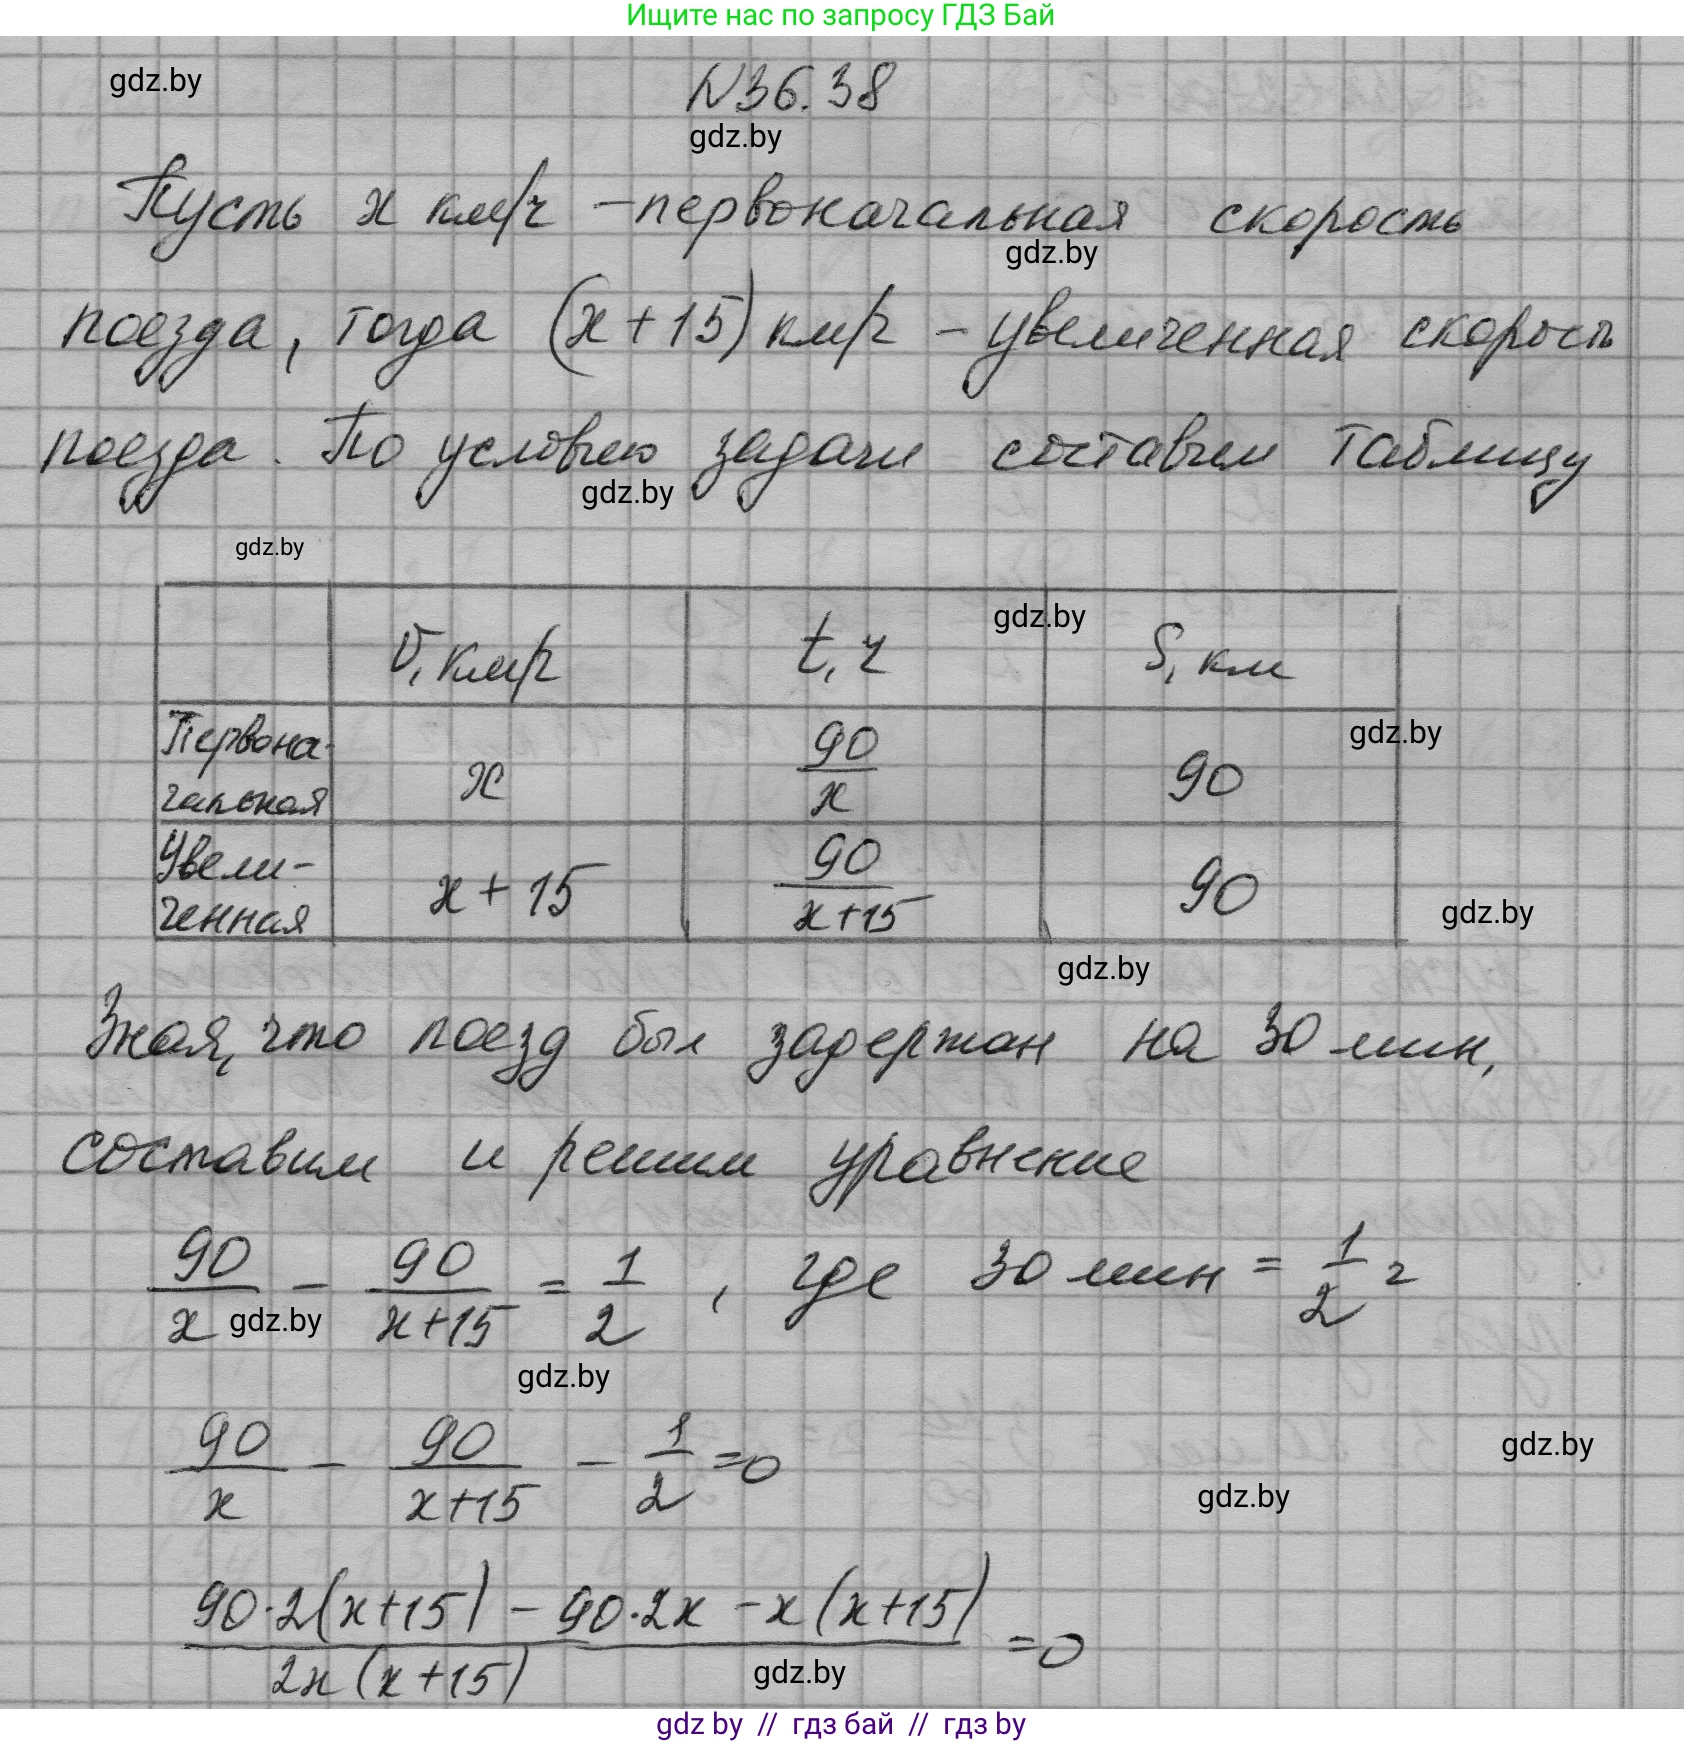 Ищите нас по запросу ГДЗ Бай
gdz.by
N36.38
gdz.by
Пусть x км/ч – первоначальная скорость
gdz.by
поезда, тогда (x+15) км/ч – увеличенная скорость
поезда. По условию задачи составим таблицу
gdz.by
gdz.by
gdz.by
v, км/ч t, ч S, км
gdz.by
Первона-
чальная x 90/x 90
Увели-
ченная x+15 90/(x+15) 90
gdz.by
gdz.by
Зная, что поезд был задержан на 30 мин,
составим и решим уравнение
90/x – 90/(x+15) = 1/2, где 30 мин = 1/2 ч
gdz.by
gdz.by
90/x – 90/(x+15) – 1/2 = 0
gdz.by
gdz.by
(90·2(x+15) – 90·2x – x(x+15))/(2x(x+15)) = 0
gdz.by
gdz by // гдз бай // гдз by